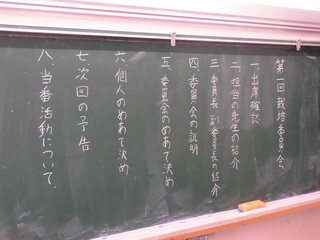 第一回栽培委員会
一、出席確認
二、担当の先生の紹介
三、委員長 副委員長の紹介
四、委員会の説明
五、委員会のめあて決め
六、個人のめあて決め
七、次回の予告
八、当番活動について